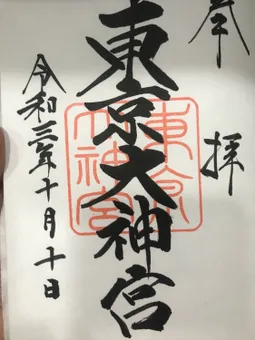 奉
拝
東京大神宮
東京
大神宮
令和三年十月十日